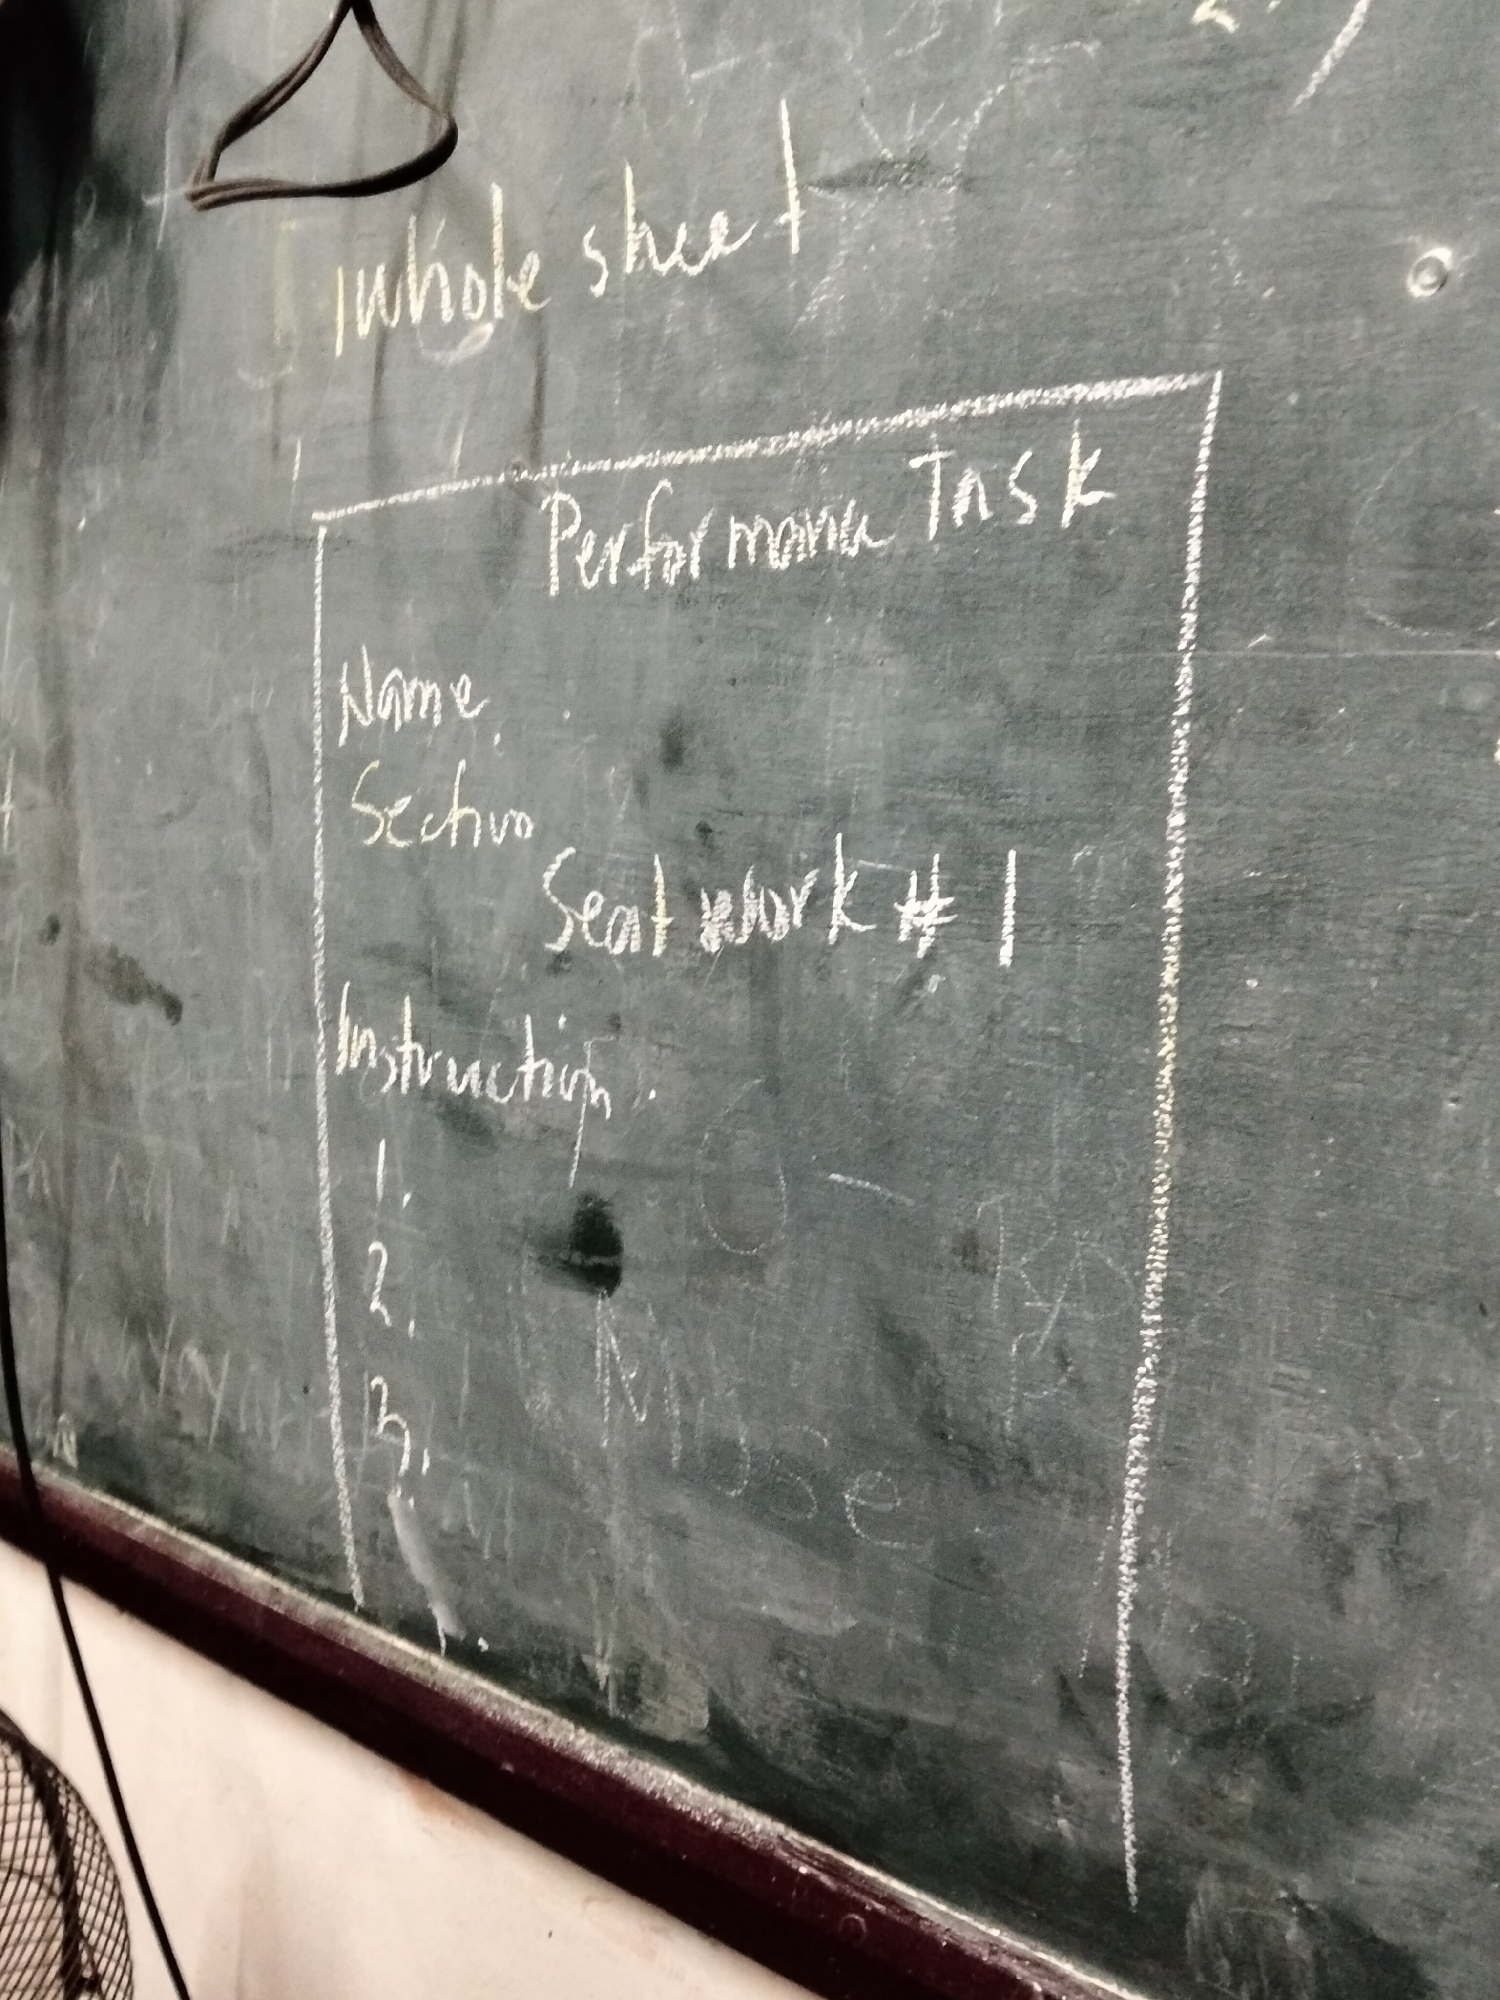 1 whole sheet
Performance Task
Name
Section
Seat work # 1
Instruction
1.
2.
3.